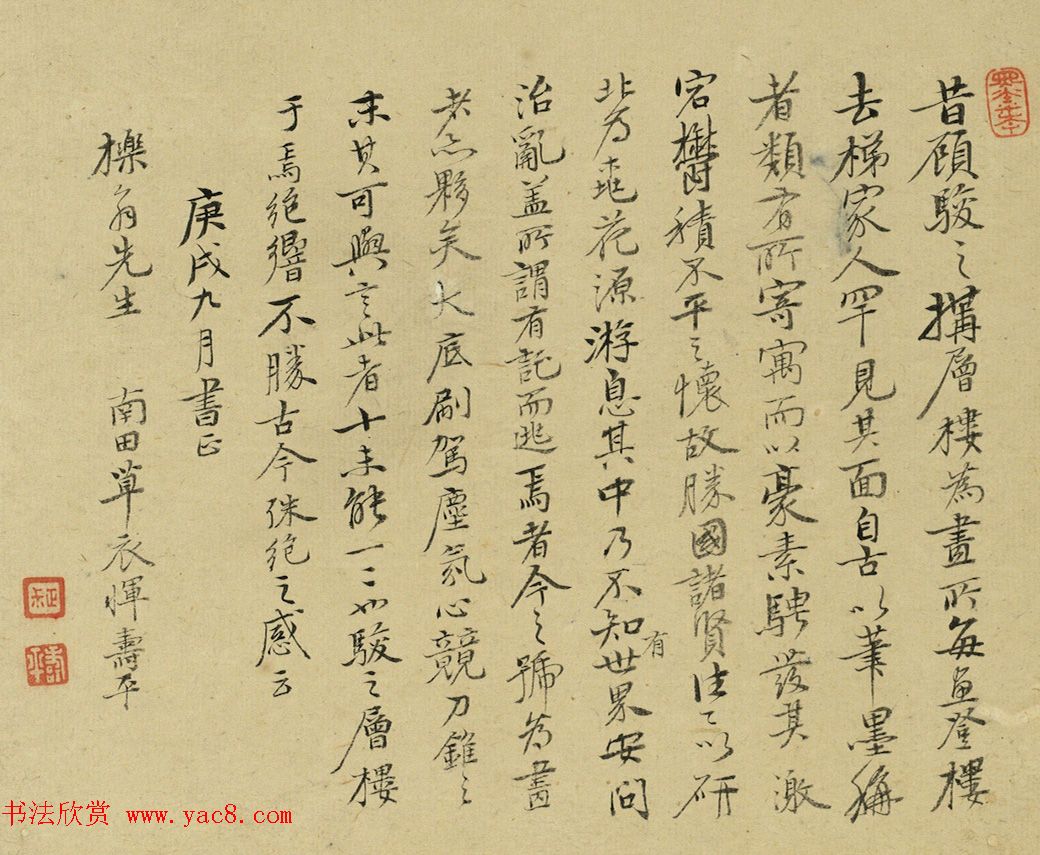 昔顧駿之搆層樓為畫所每畫登樓
去梯家人罕見其面自古以筆墨稱
者類有所寄寓而以豪素騁發其激
宕鬱積不平之懷故勝國諸賢往〻以研
北為桃花源游息其中乃不知有世界安問
治亂蓋所謂有託而逃焉者今之號為畫
者亦夥矣大底刷駕塵氛心競刀錐之
末其可與言此者十未能一二也駿之層樓
于焉絕響不勝古今殊絕之感云
庚戌九月書正
櫟翁先生 南田草衣惲壽平
书法欣赏 www.yac8.com